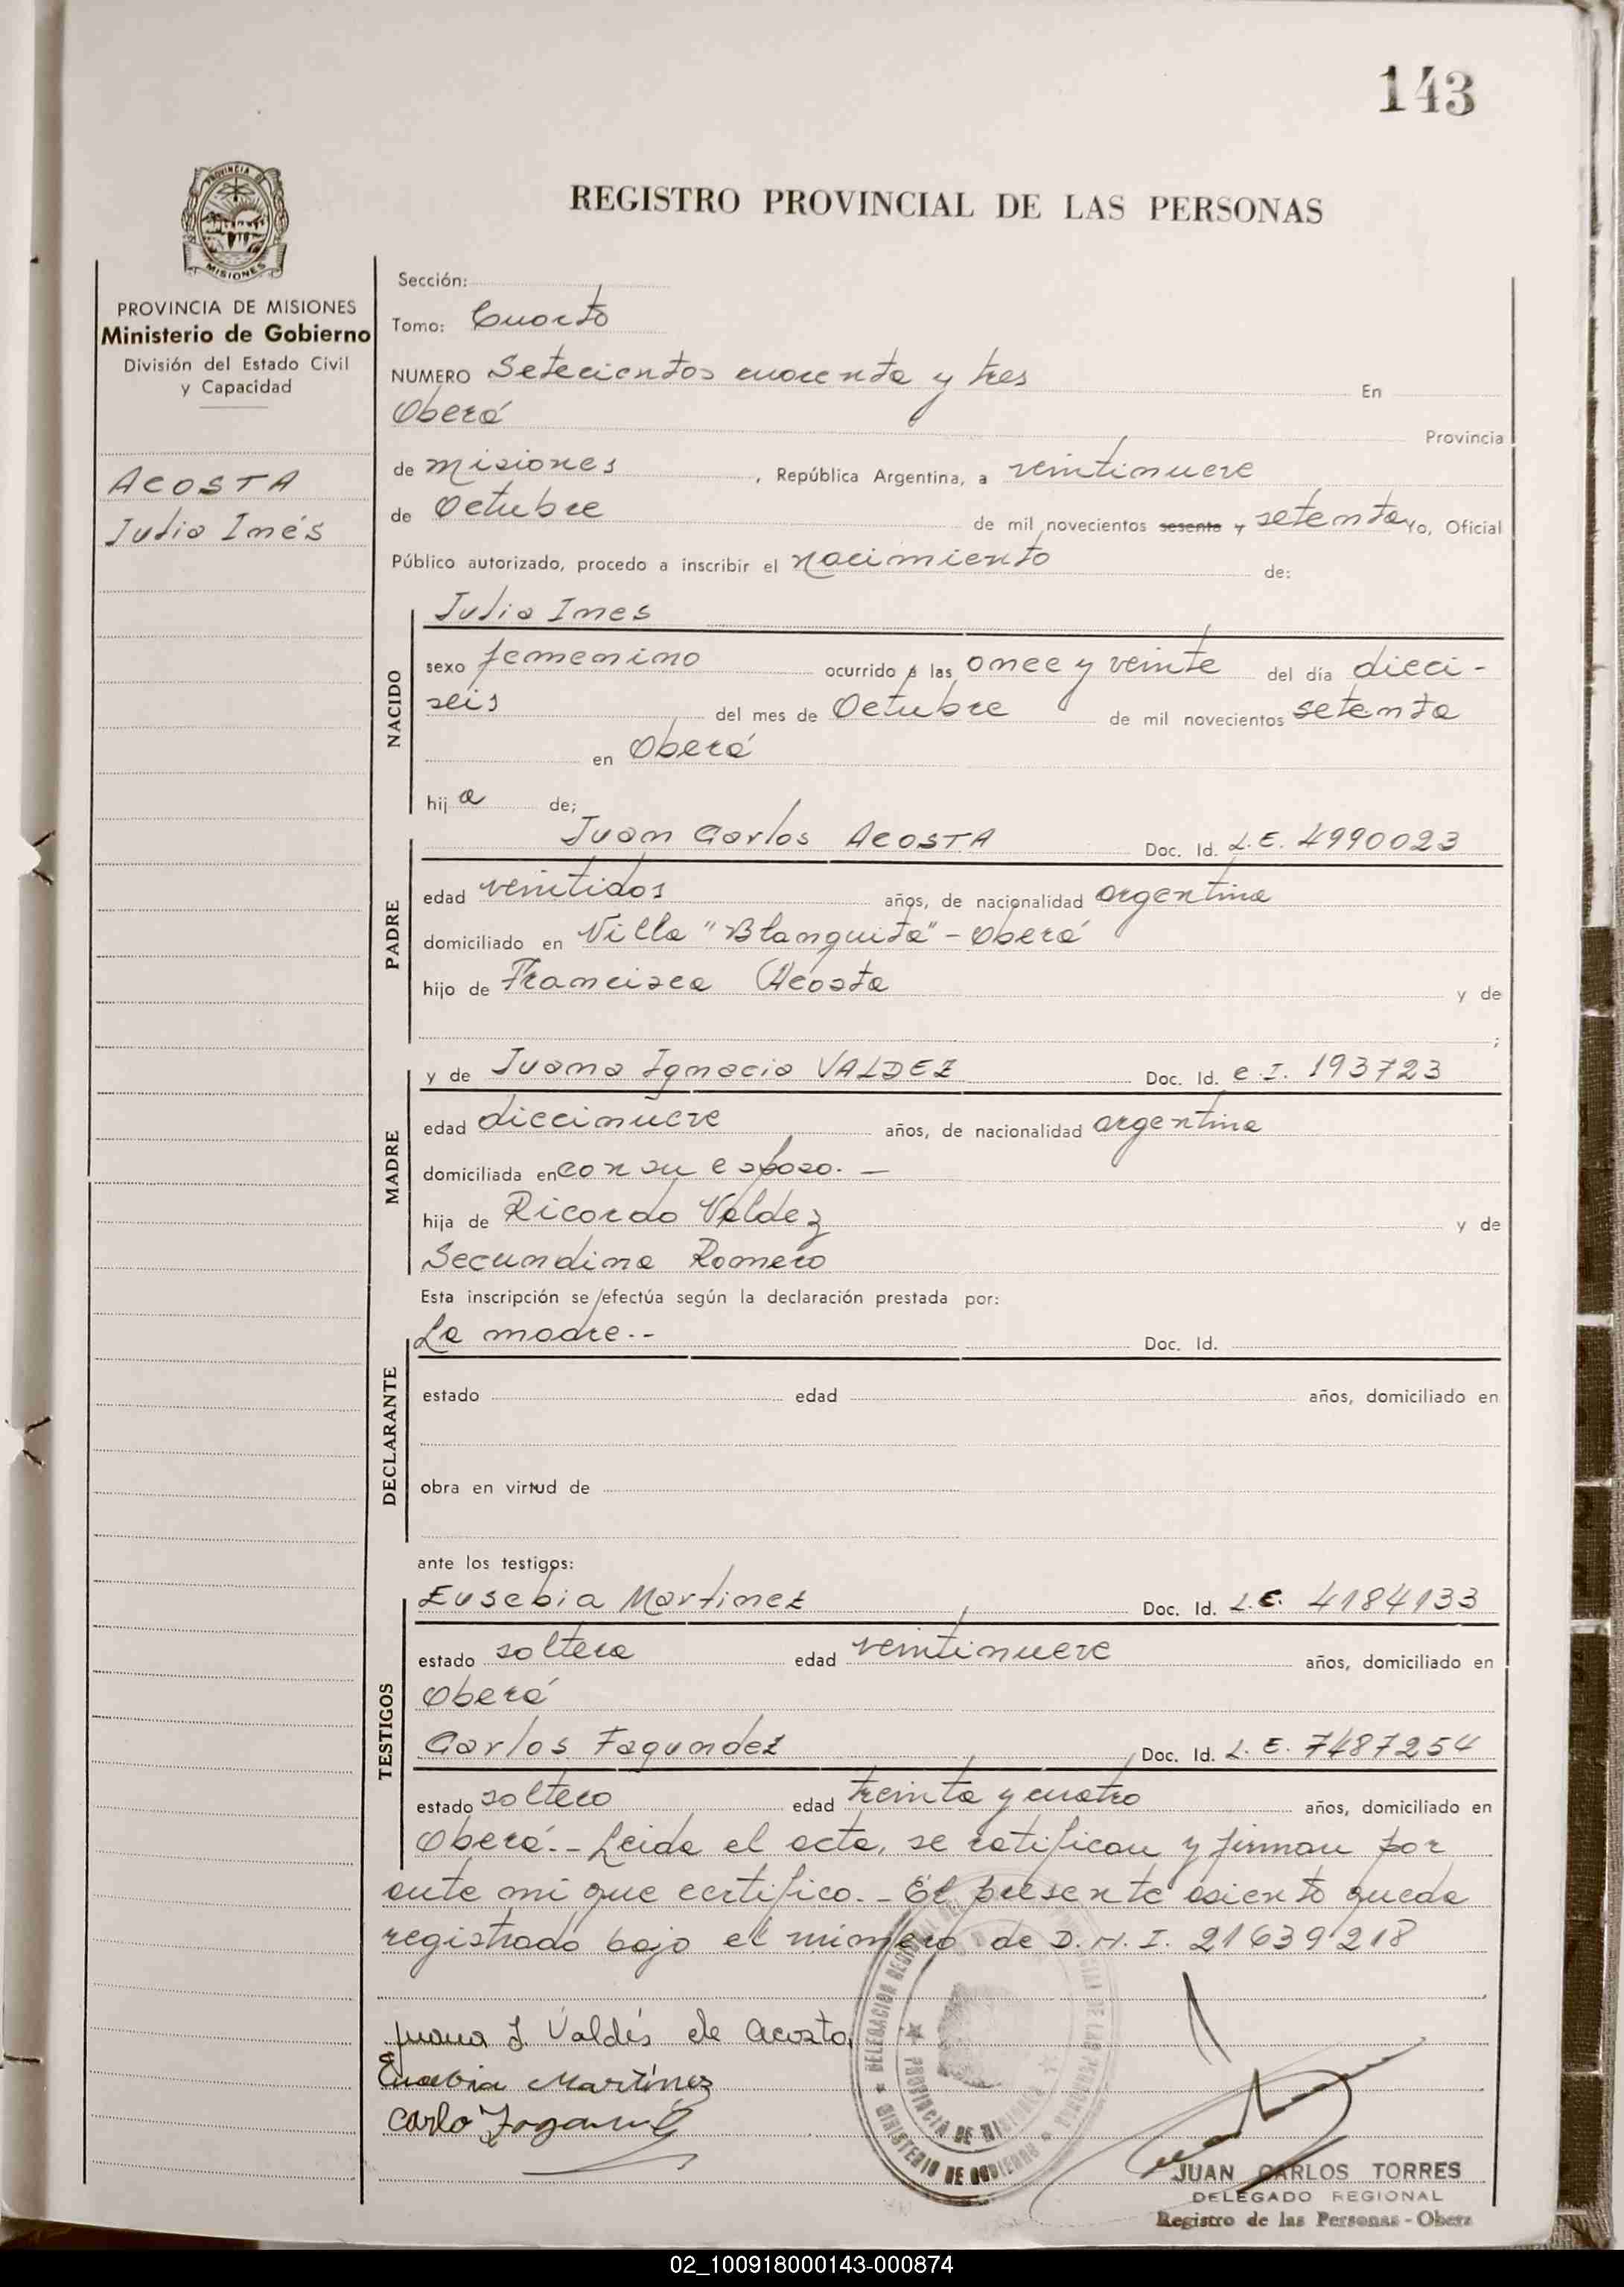 143
PROVINCIA DE
MISIONES
REGISTRO PROVINCIAL DE LAS PERSONAS
PROVINCIA DE MISIONES
Ministerio de Gobierno
División del Estado Civil
y Capacidad
ACOSTA
Julia Inés
Sección:
Tomo: Cuarto
NUMERO Setecientos cuarenta y tres En
Oberá Provincia
de Misiones, República Argentina, a veintinueve
de Octubre de mil novecientos sesenta y setenta Yo, Oficial
Público autorizado, procedo a inscribir el nacimiento de:
NACIDO
Julia Ines
sexo femenino ocurrido a las once y veinte del día dieci-
seis del mes de Octubre de mil novecientos setenta
en Oberá
hij a de;
PADRE
Juan Carlos ACOSTA Doc. Id. L.E. 4990023
edad veintidos años, de nacionalidad argentina
domiciliado en Villa "Blanquita" - Oberá
hijo de Francisca Acosta y de
;
MADRE
y de Juana Ignacia VALDEZ Doc. Id. C.I. 193723
edad diecinueve años, de nacionalidad argentina
domiciliada en con su esposo. -
hija de Ricardo Valdez y de
Secundina Romero
Esta inscripción se efectúa según la declaración prestada por:
DECLARANTE
La madre.-- Doc. Id.
estado edad años, domiciliado en
obra en virtud de
ante los testigos:
TESTIGOS
Eusebia Martinez Doc. Id. L.E. 4184133
estado soltera edad veintinueve años, domiciliado en
Oberá
Carlos Fagundez Doc. Id. L.E. 7487254
estado soltero edad treinta y cuatro años, domiciliado en
Oberá.-- Leida el acta, se ratifican y firman por
ante mi que certifico.- El presente asiento queda
registrado bajo el número de D.N.I. 21639218
Juana I. Valdés de Acosta
Eusebia Martínez
Carlo
DELEGACION REGIONAL
DE LAS PERSONAS
MINISTERIO DE GOBIERNO
PROVINCIA DE MISIONES
JUAN CARLOS TORRES
DELEGADO REGIONAL
Registro de las Personas - Obera
02_100918000143-000874